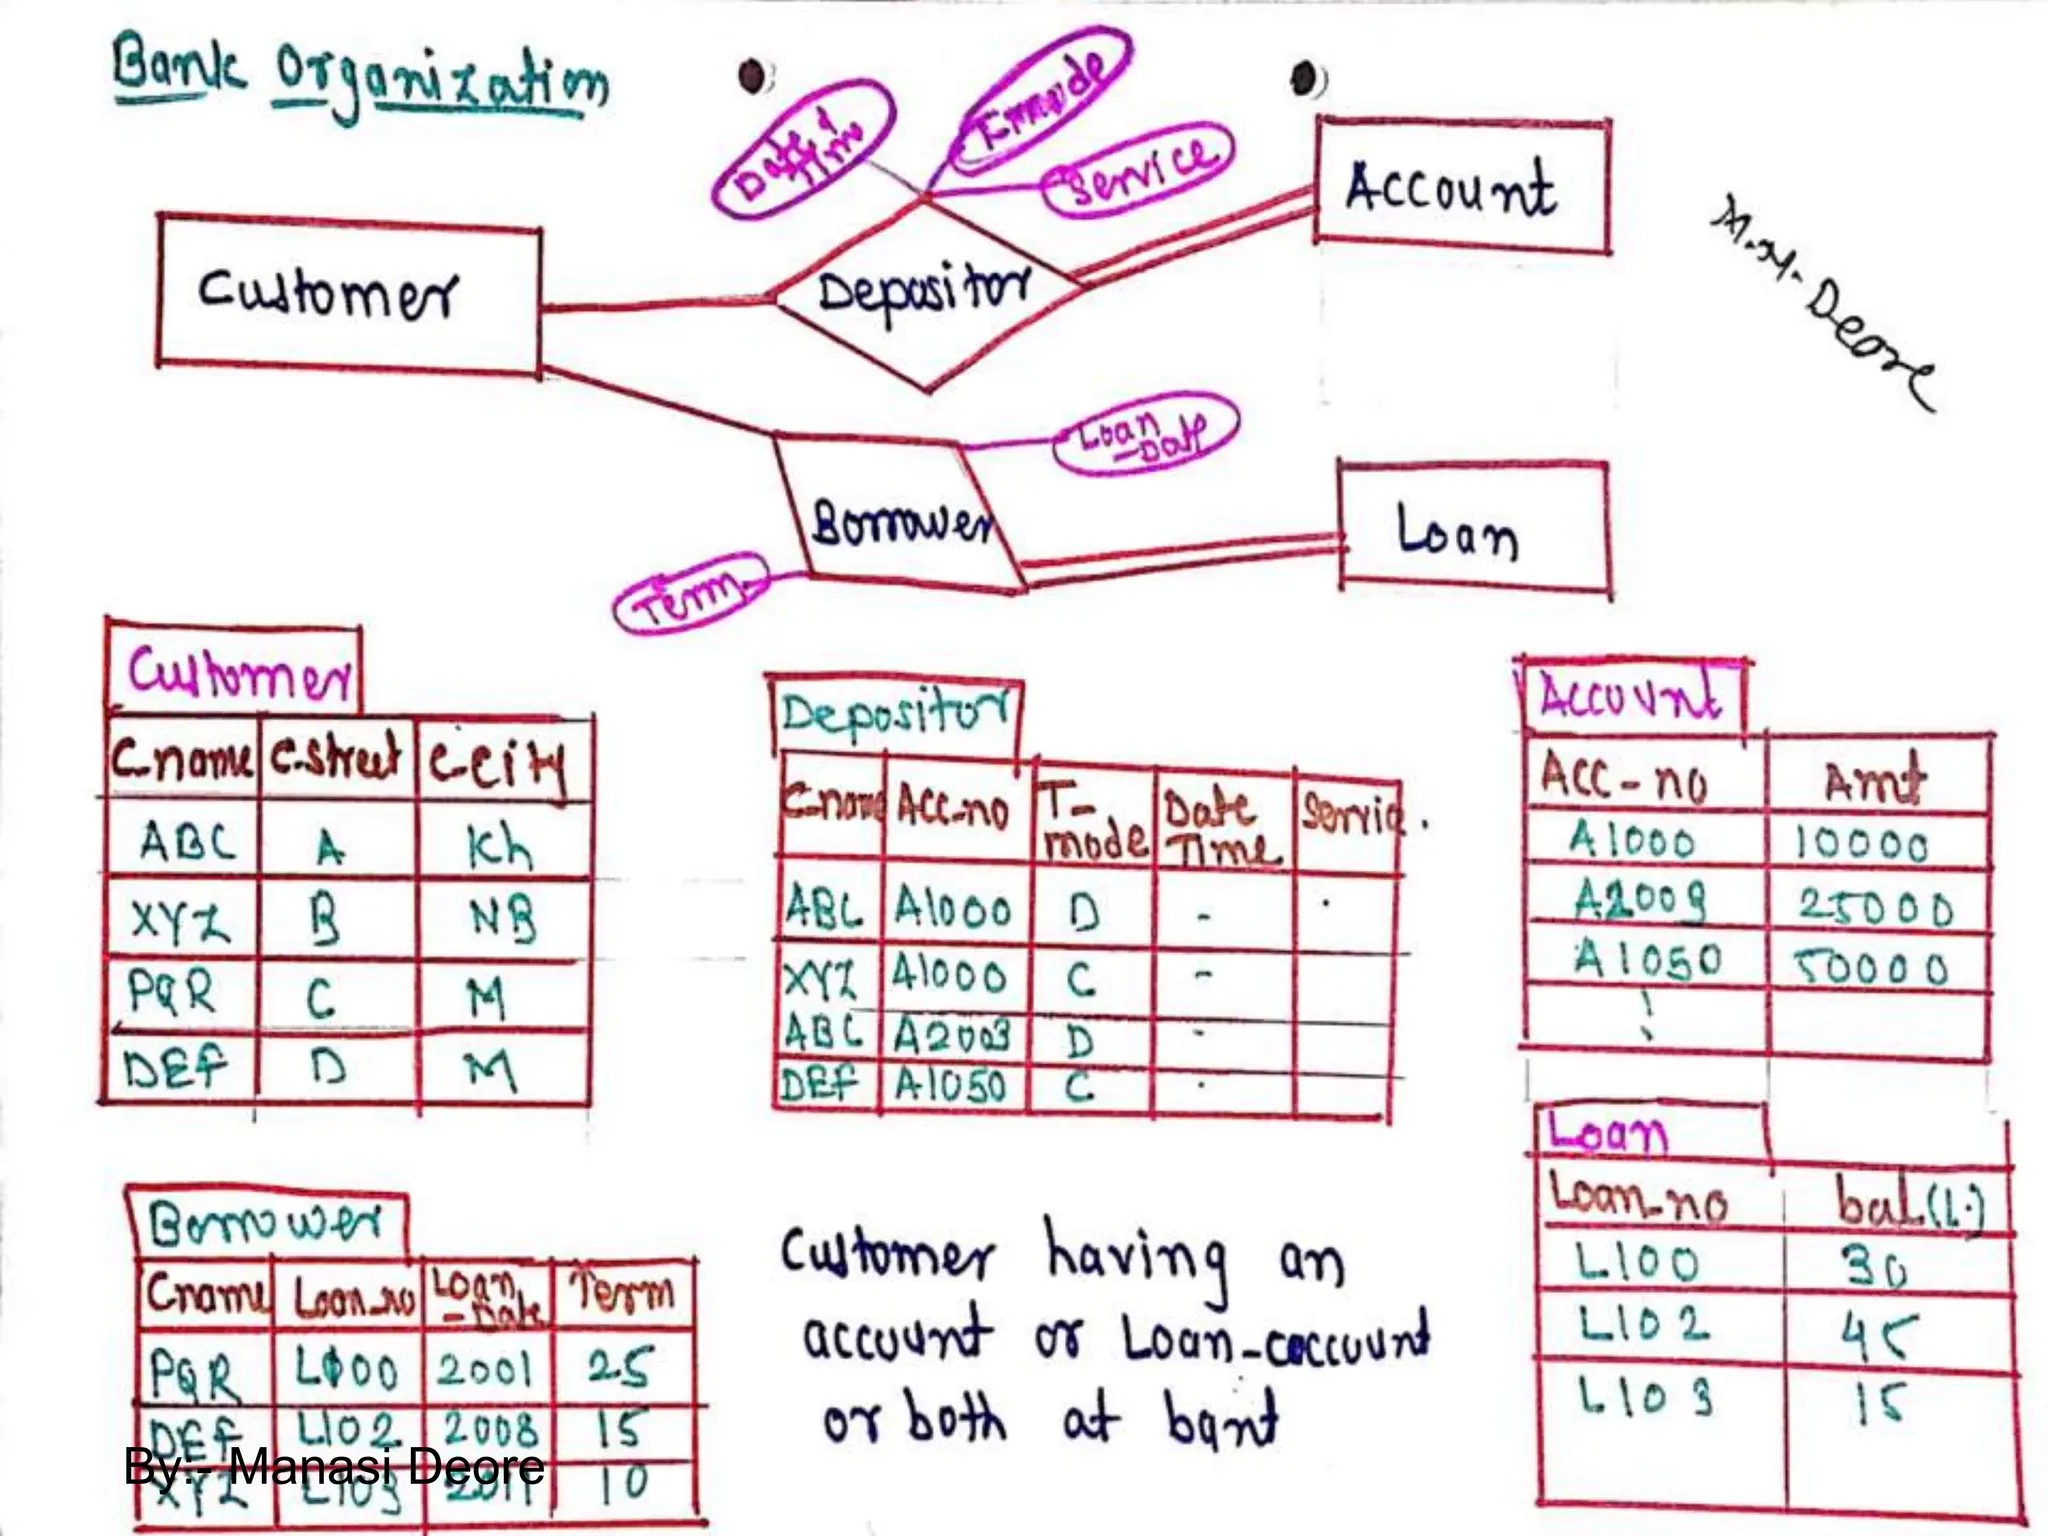 Bank Organization
Date &
Time
T-mode
Service
Account
Customer
Depositor
M.M. Deore
Loan
-Date
Borrower
Loan
Term
Customer
C-name C-street C-City
ABC A Kh
XYZ B NB
PQR C M
DEF D M
Depositor
C-name Acc-no T-mode Date Time Servic.
ABC A1000 D - .
XYZ A1000 C -
ABC A2003 D -
DEF A1050 C .
Account
Acc-no Amt
A1000 10000
A2009 25000
A1050 50000
Loan
Loan-no bal(L.)
L100 30
L102 45
L103 15
Borrower
Cname Loan-no Loan-Date Term
PQR L100 2001 25
DEF L102 2008 15
XYZ L103 2011 10
Customer having an
account or Loan-account
or both at bank
By:- Manasi Deore